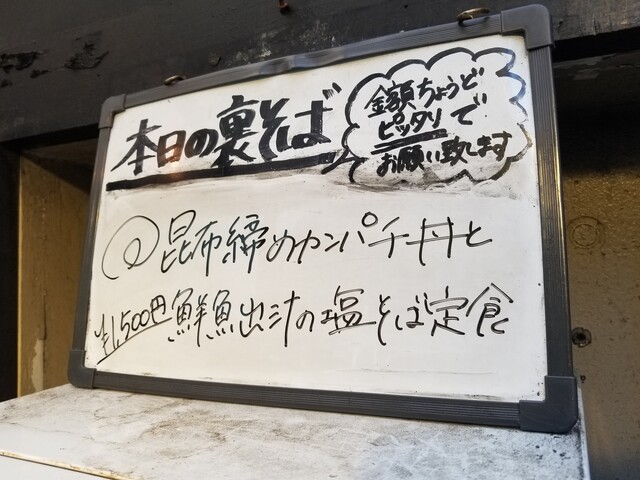 本日の裏そば
金額ちょうど
ピッタリで
お願い致します
@昆布締めカンパチ丼と
¥1,500円 鮮魚出汁の塩そば定食